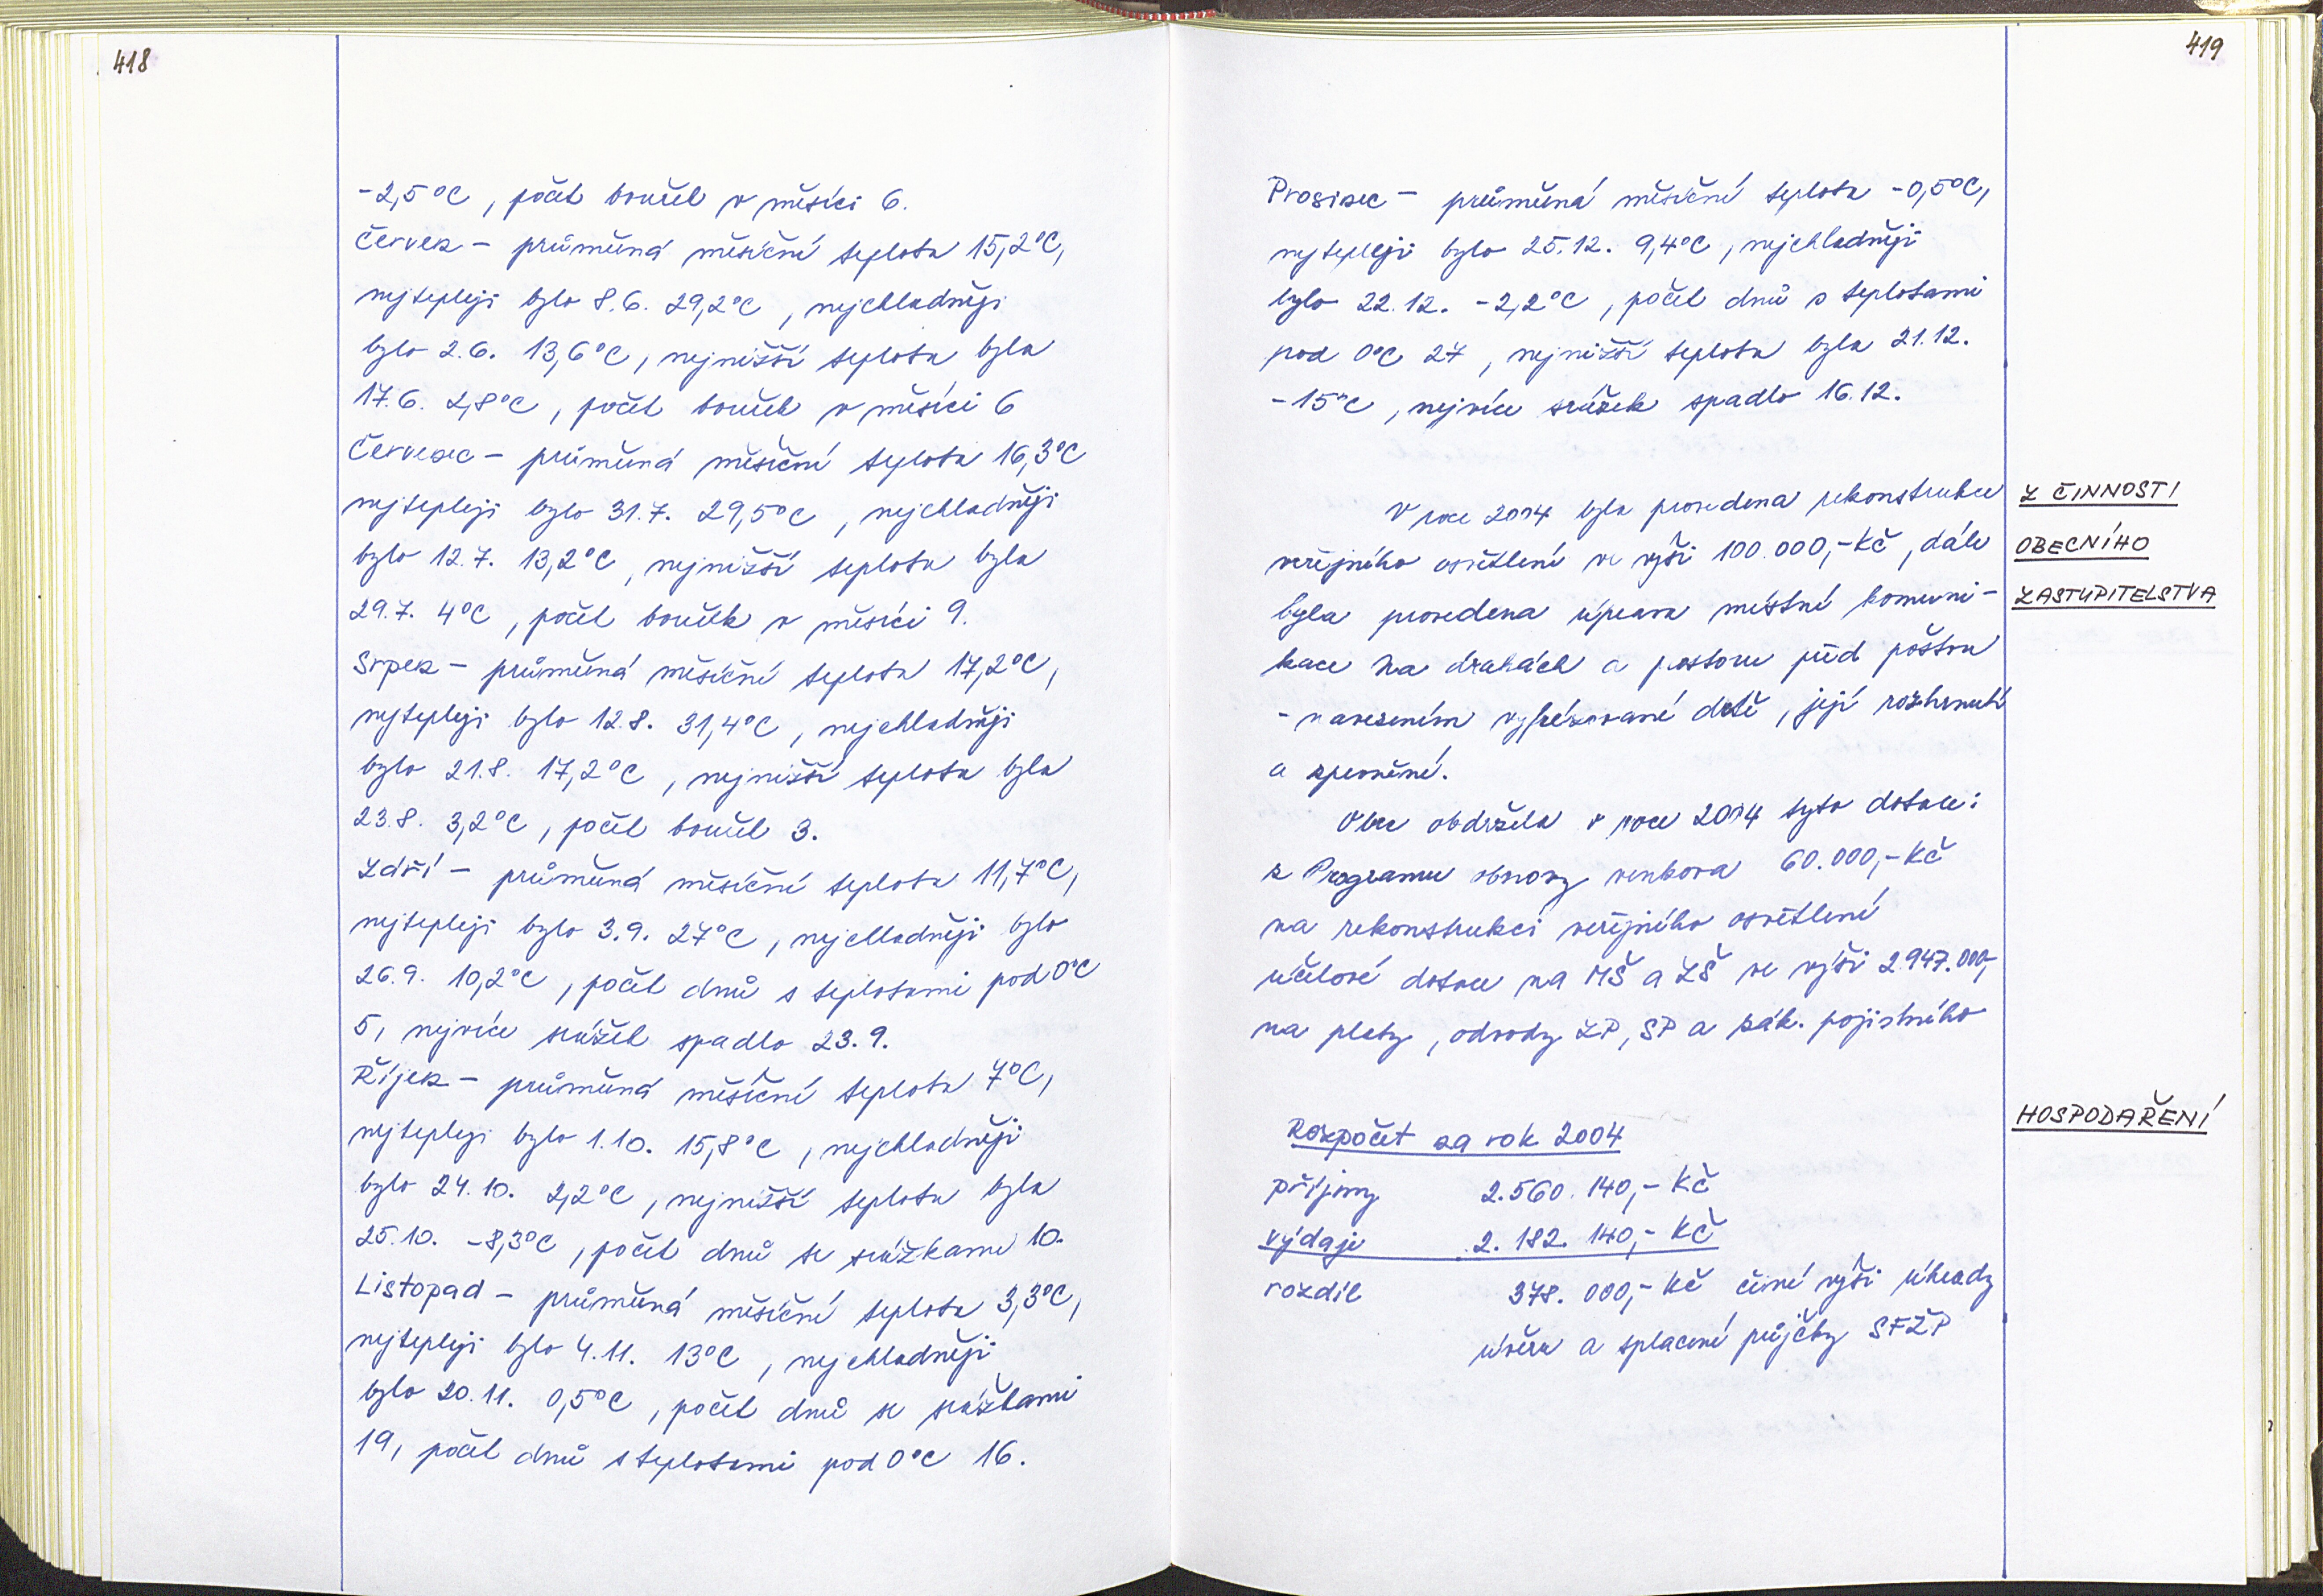 418
-2,5°C, počet bouřek v měsíci 6.
Červen - průměrná měsíční teplota 15,2°C,
nejtepleji bylo 8.6. 29,2°C, nejchladněji
bylo 2.6. 13,6°C, nejnižší teplota byla
17.6. 2,8°C, počet bouřek v měsíci 6
Červenec - průměrná měsíční teplota 16,3°C
nejtepleji bylo 31.7. 29,5°C, nejchladněji
bylo 12.7. 13,2°C, nejnižší teplota byla
29.7. 4°C, počet bouřek v měsíci 9.
Srpen - průměrná měsíční teplota 17,2°C,
nejtepleji bylo 12.8. 31,4°C, nejchladněji
bylo 21.8. 17,2°C, nejnižší teplota byla
23.8. 3,2°C, počet bouřek 3.
Září - průměrná měsíční teplota 11,7°C,
nejtepleji bylo 3.9. 27°C, nejchladněji bylo
26.9. 10,2°C, počet dnů s teplotami pod 0°C
5, nejvíce srážek spadlo 23.9.
Říjen - průměrná měsíční teplota 7°C,
nejtepleji bylo 1.10. 15,8°C, nejchladněji
bylo 24.10. 2,2°C, nejnižší teplota byla
25.10. -8,3°C, počet dnů se srážkami 10.
Listopad - průměrná měsíční teplota 3,3°C,
nejtepleji bylo 4.11. 13°C, nejchladněji
bylo 20.11. 0,5°C, počet dnů se srážkami
19, počet dnů s teplotami pod 0°C 16.
419
Prosinec - průměrná měsíční teplota -0,5°C,
nejtepleji bylo 25.12. 9,4°C, nejchladněji
bylo 22.12. -2,2°C, počet dnů s teplotami
pod 0°C 27, nejnižší teplota byla 21.12.
-15°C, nejvíce srážek spadlo 16.12.
Z ČINNOSTI
OBECNÍHO
ZASTUPITELSTVA
V roce 2004 byla provedena rekonstrukce
veřejného osvětlení ve výši 100.000,-Kč, dále
byla provedena úprava místní komuni-
kace Na drahách a prostoru před poštou
- navezením vyfrézované drtě, její rozhrnutí
a zpevnění.
Obec obdržela v roce 2004 tyto dotace:
z Programu obnovy venkova 60.000,-Kč
na rekonstrukci veřejného osvětlení
účelové dotace na MŠ a ZŠ ve výši 2.947.000,-
na platy, odvody ZP, SP a zák. pojistného
HOSPODAŘENÍ
Rozpočet za rok 2004
příjmy 2.560.140,- Kč
výdaje 2.182.140,- Kč
rozdíl 378.000,- Kč činí výši úhrady
úvěru a splacení půjčky SFŽP